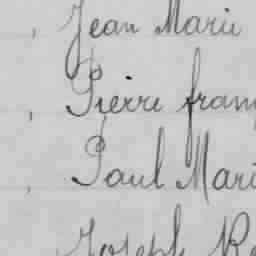 , Jean Marie
, Pierre
, Paul Mari
Joseph